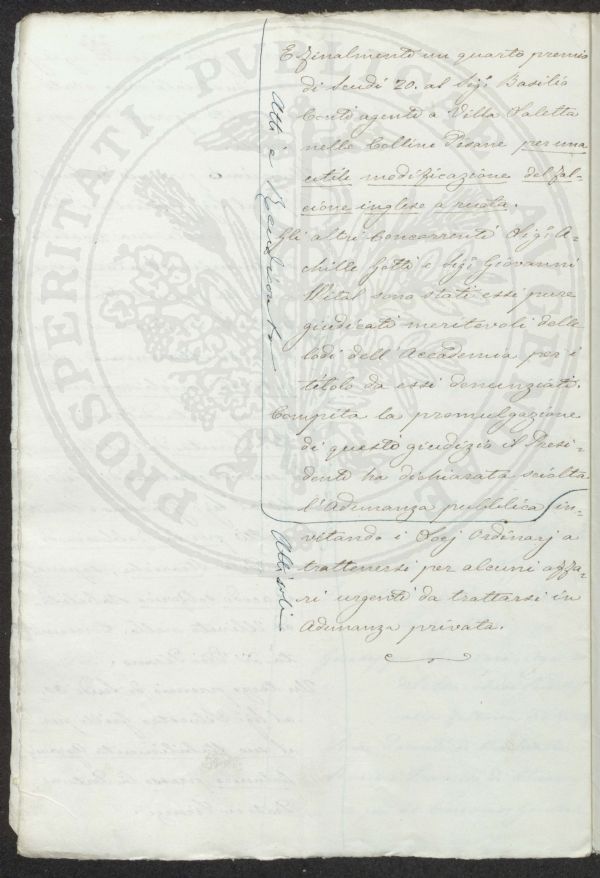 E finalmente un quarto premio
di Scudi 20. al Sigr Basilio
Conti agente a Villa Saletta
nelle Colline Pisane per una
utile modificazione del fal-
cione inglese a ruota.
Gli altri Concorrenti Sigr A-
chille Gotti e Sigr Giovanni
Vital sono stati essi pure
giudicati meritevoli delle
lodi dell'Accademia per i
titoli da essi denunziati.
Compita la promulgazione
di questo giudizio il Presi-
dente ha dichiarata sciolta
l'Adunanza pubblica, in-
vitando i Socj Ordinarj a
trattenersi per alcuni affa-
ri urgenti da trattarsi in
Adunanza privata.
Atti e Rendiconti
Atti soli
PROSPERITATI PUBLICAE AUGENDAE